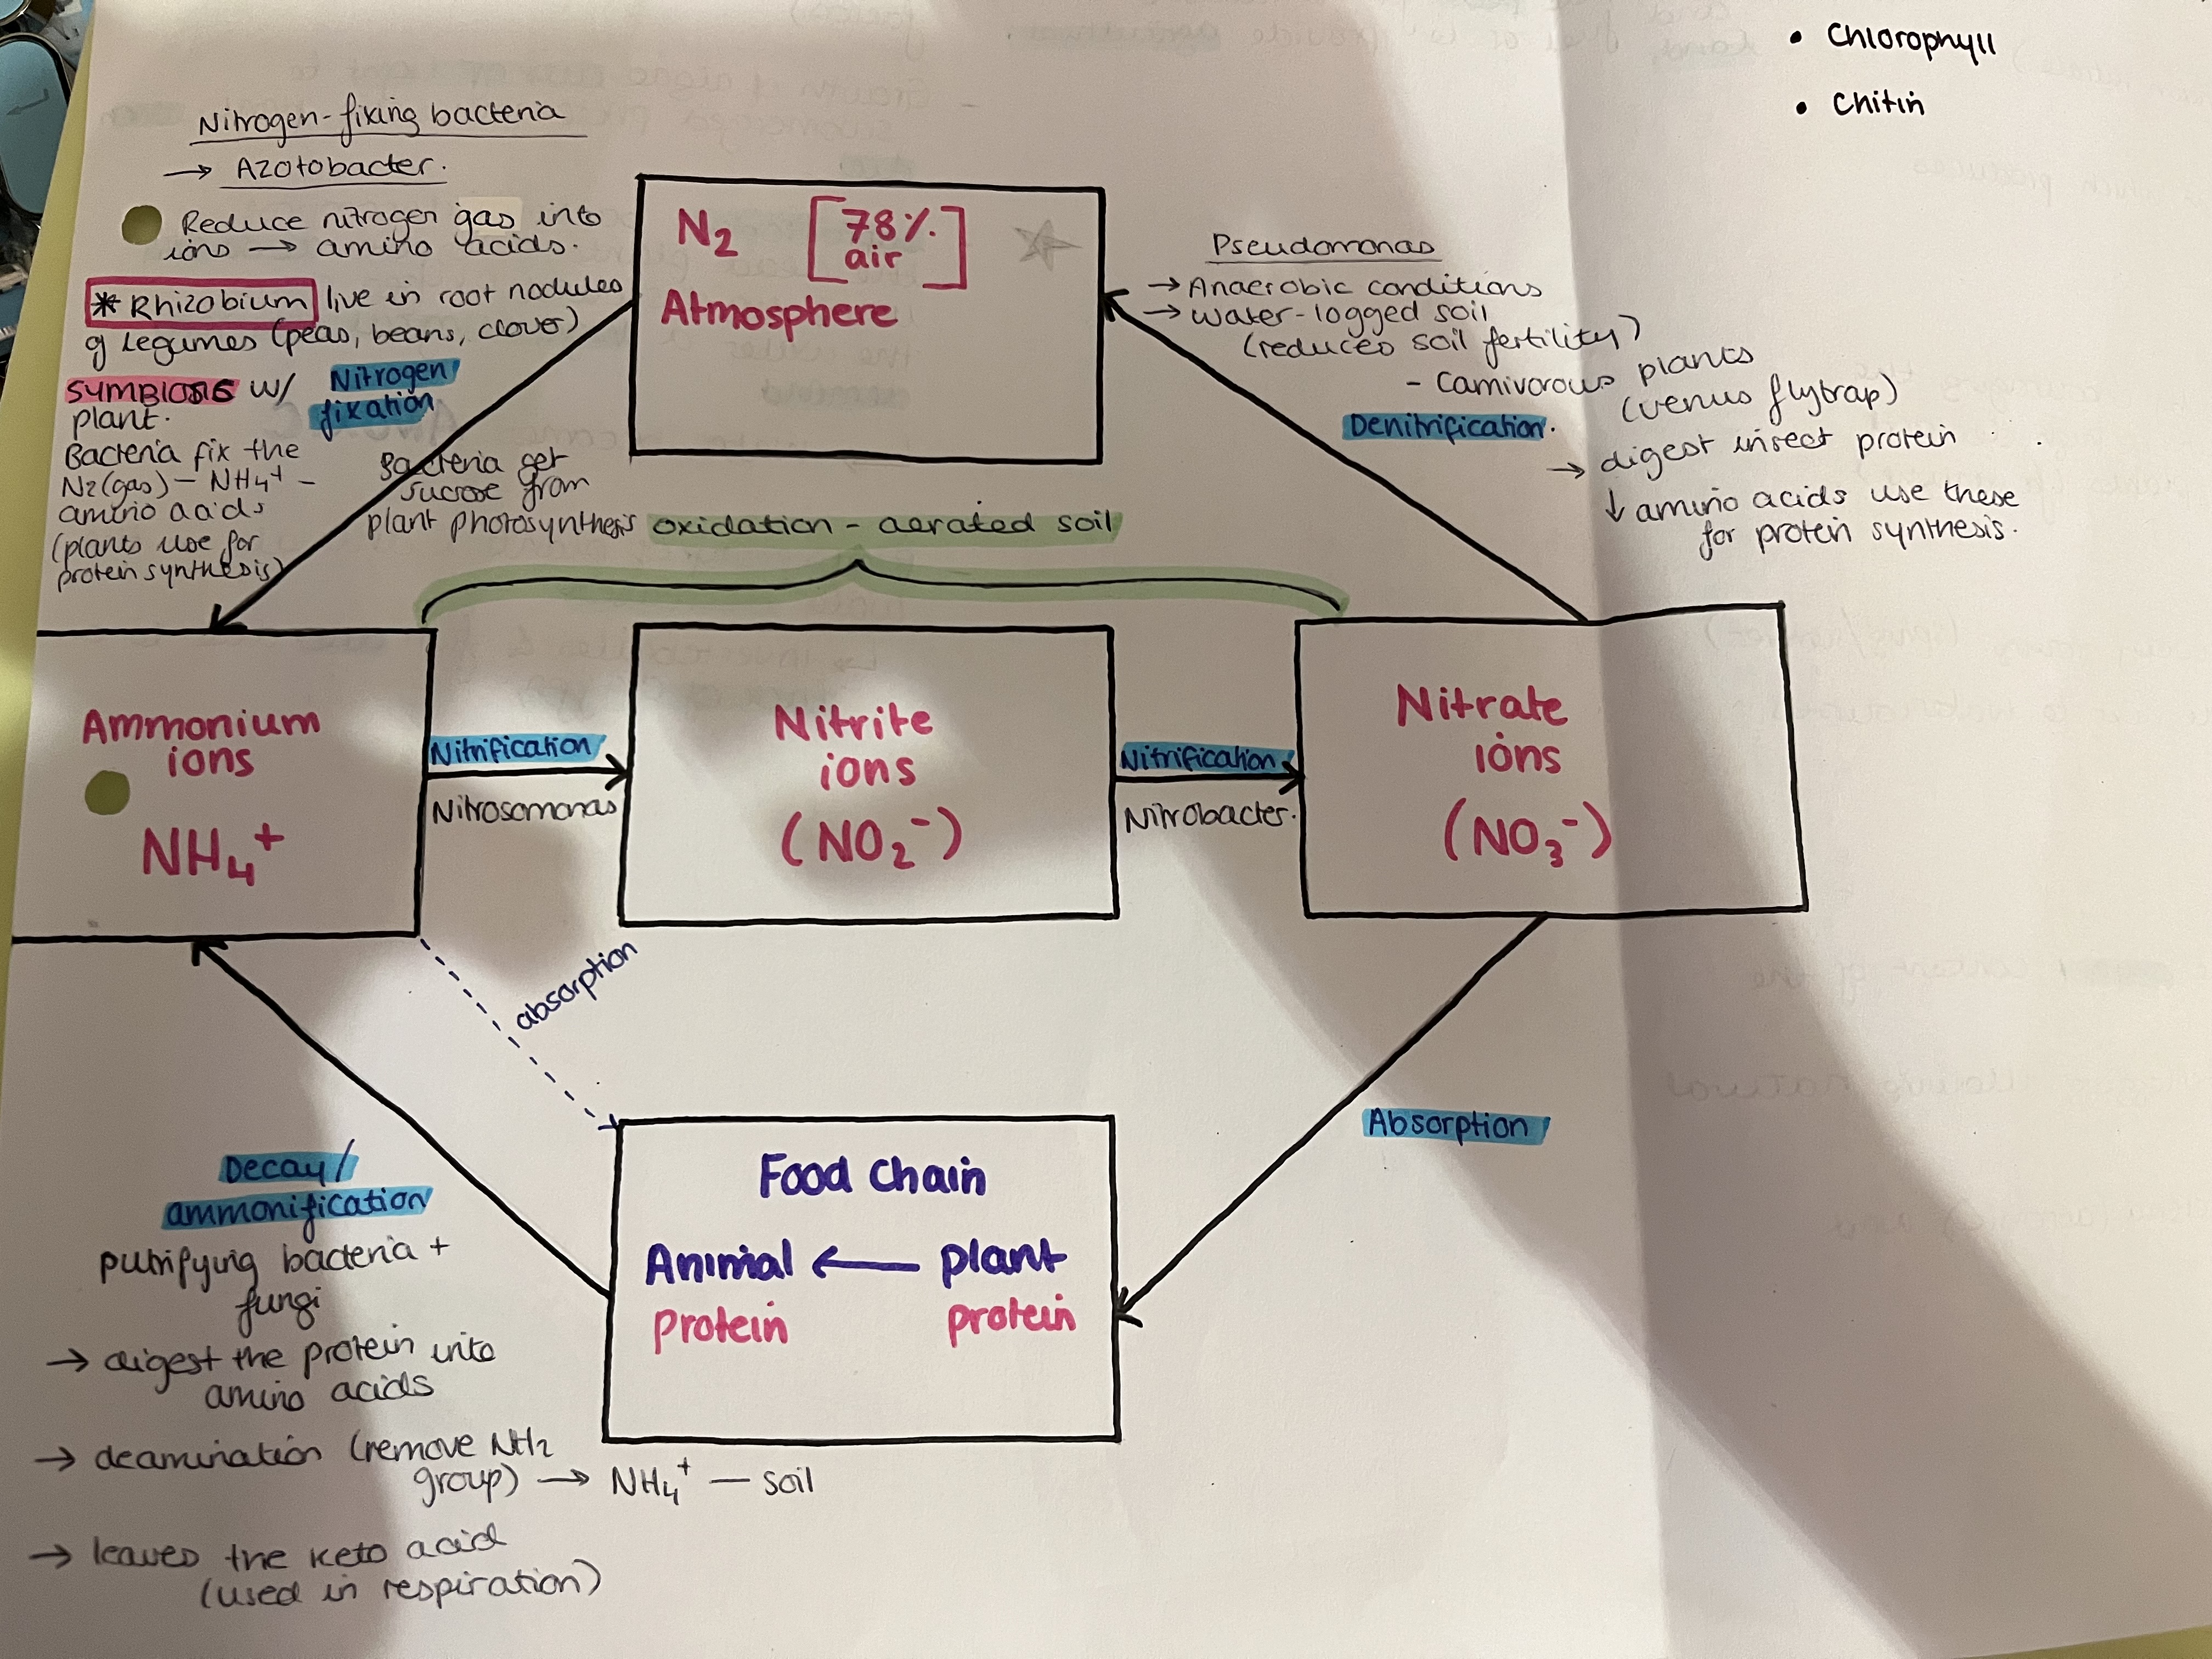 • Chlorophyll
• Chitin
Nitrogen-fixing bacteria
→ Azotobacter.
Reduce nitrogen gas into
ions → amino acids.
* Rhizobium live in root nodules
of legumes (peas, beans, clover)
SYMBIOSIS w/
plant.
Bacteria fix the
N2(gas) – NH4+ –
amino acids
(plants use for
protein synthesis)
Nitrogen
fixation
Bacteria get
sucrose from
plant photosynthesis
N2 [78% air]
Atmosphere
Pseudomonas
→ Anaerobic conditions
→ water-logged soil
(reduces soil fertility)
- Carnivorous plants
(venus flytrap)
Denitrification.
→ digest insect protein
↓ amino acids use these
for protein synthesis.
oxidation - aerated soil
Ammonium
ions
NH4+
Nitrification
Nitrosomonas
Nitrite
ions
(NO2-)
Nitrification
Nitrobacter.
Nitrate
ions
(NO3-)
absorption
Absorption
Food Chain
Animal ← plant
protein protein
Decay/
ammonification
putrifying bacteria +
fungi
→ digest the protein into
amino acids
→ deamination (remove NH2
group) → NH4+ — soil
→ leaves the keto acid
(used in respiration)